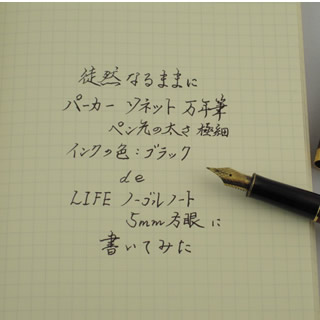 徒然なるままに
パーカー ソネット 万年筆
ペン先の太さ 極細
インクの色：ブラック
de
LIFE ノーブルノート
5mm方眼 に
書いてみた